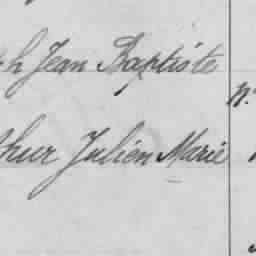 h Jean Baptiste
N.
thur Julien Marie